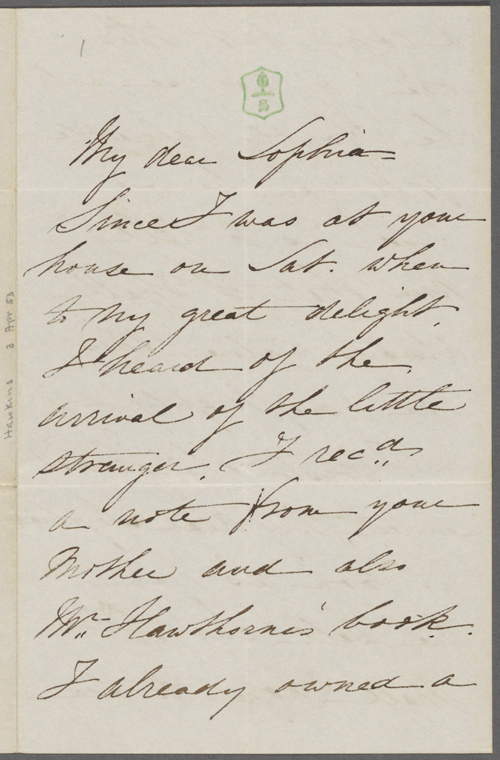 1
S
My dear Sophia=
Since I was at your
house on Sat. when
to my great delight,
I heard of the
arrival of the little
stranger, I recd
a note from your
Mother and also
Mr. Hawthorne's book.
I already owned a
Hawkins 3 Apr 53